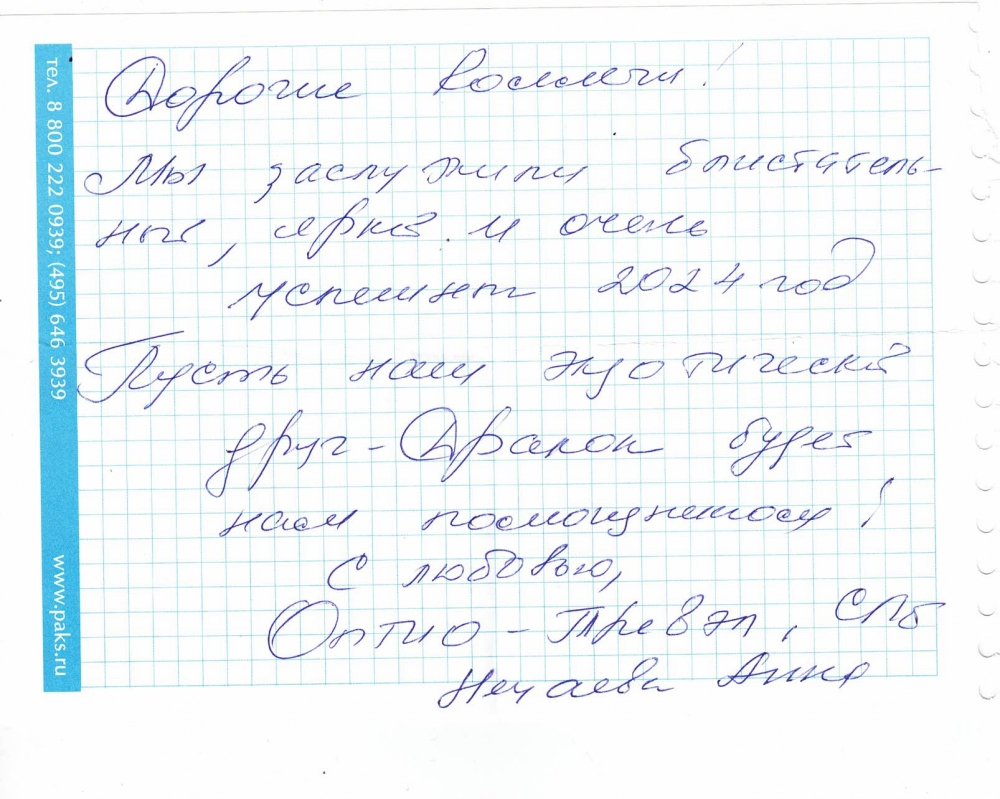 тел. 8 800 222 0939; (495) 646 3939
www.paks.ru
Дорогие коллеги!
Мы заслужили блистатель-
ный, яркий и очень
успешный 2024 год
Пусть наш экзотический
друг - Дракон будет
нам помощником!
С любовью,
Оптио - Трэвэл, СПб
Нечаева Анна